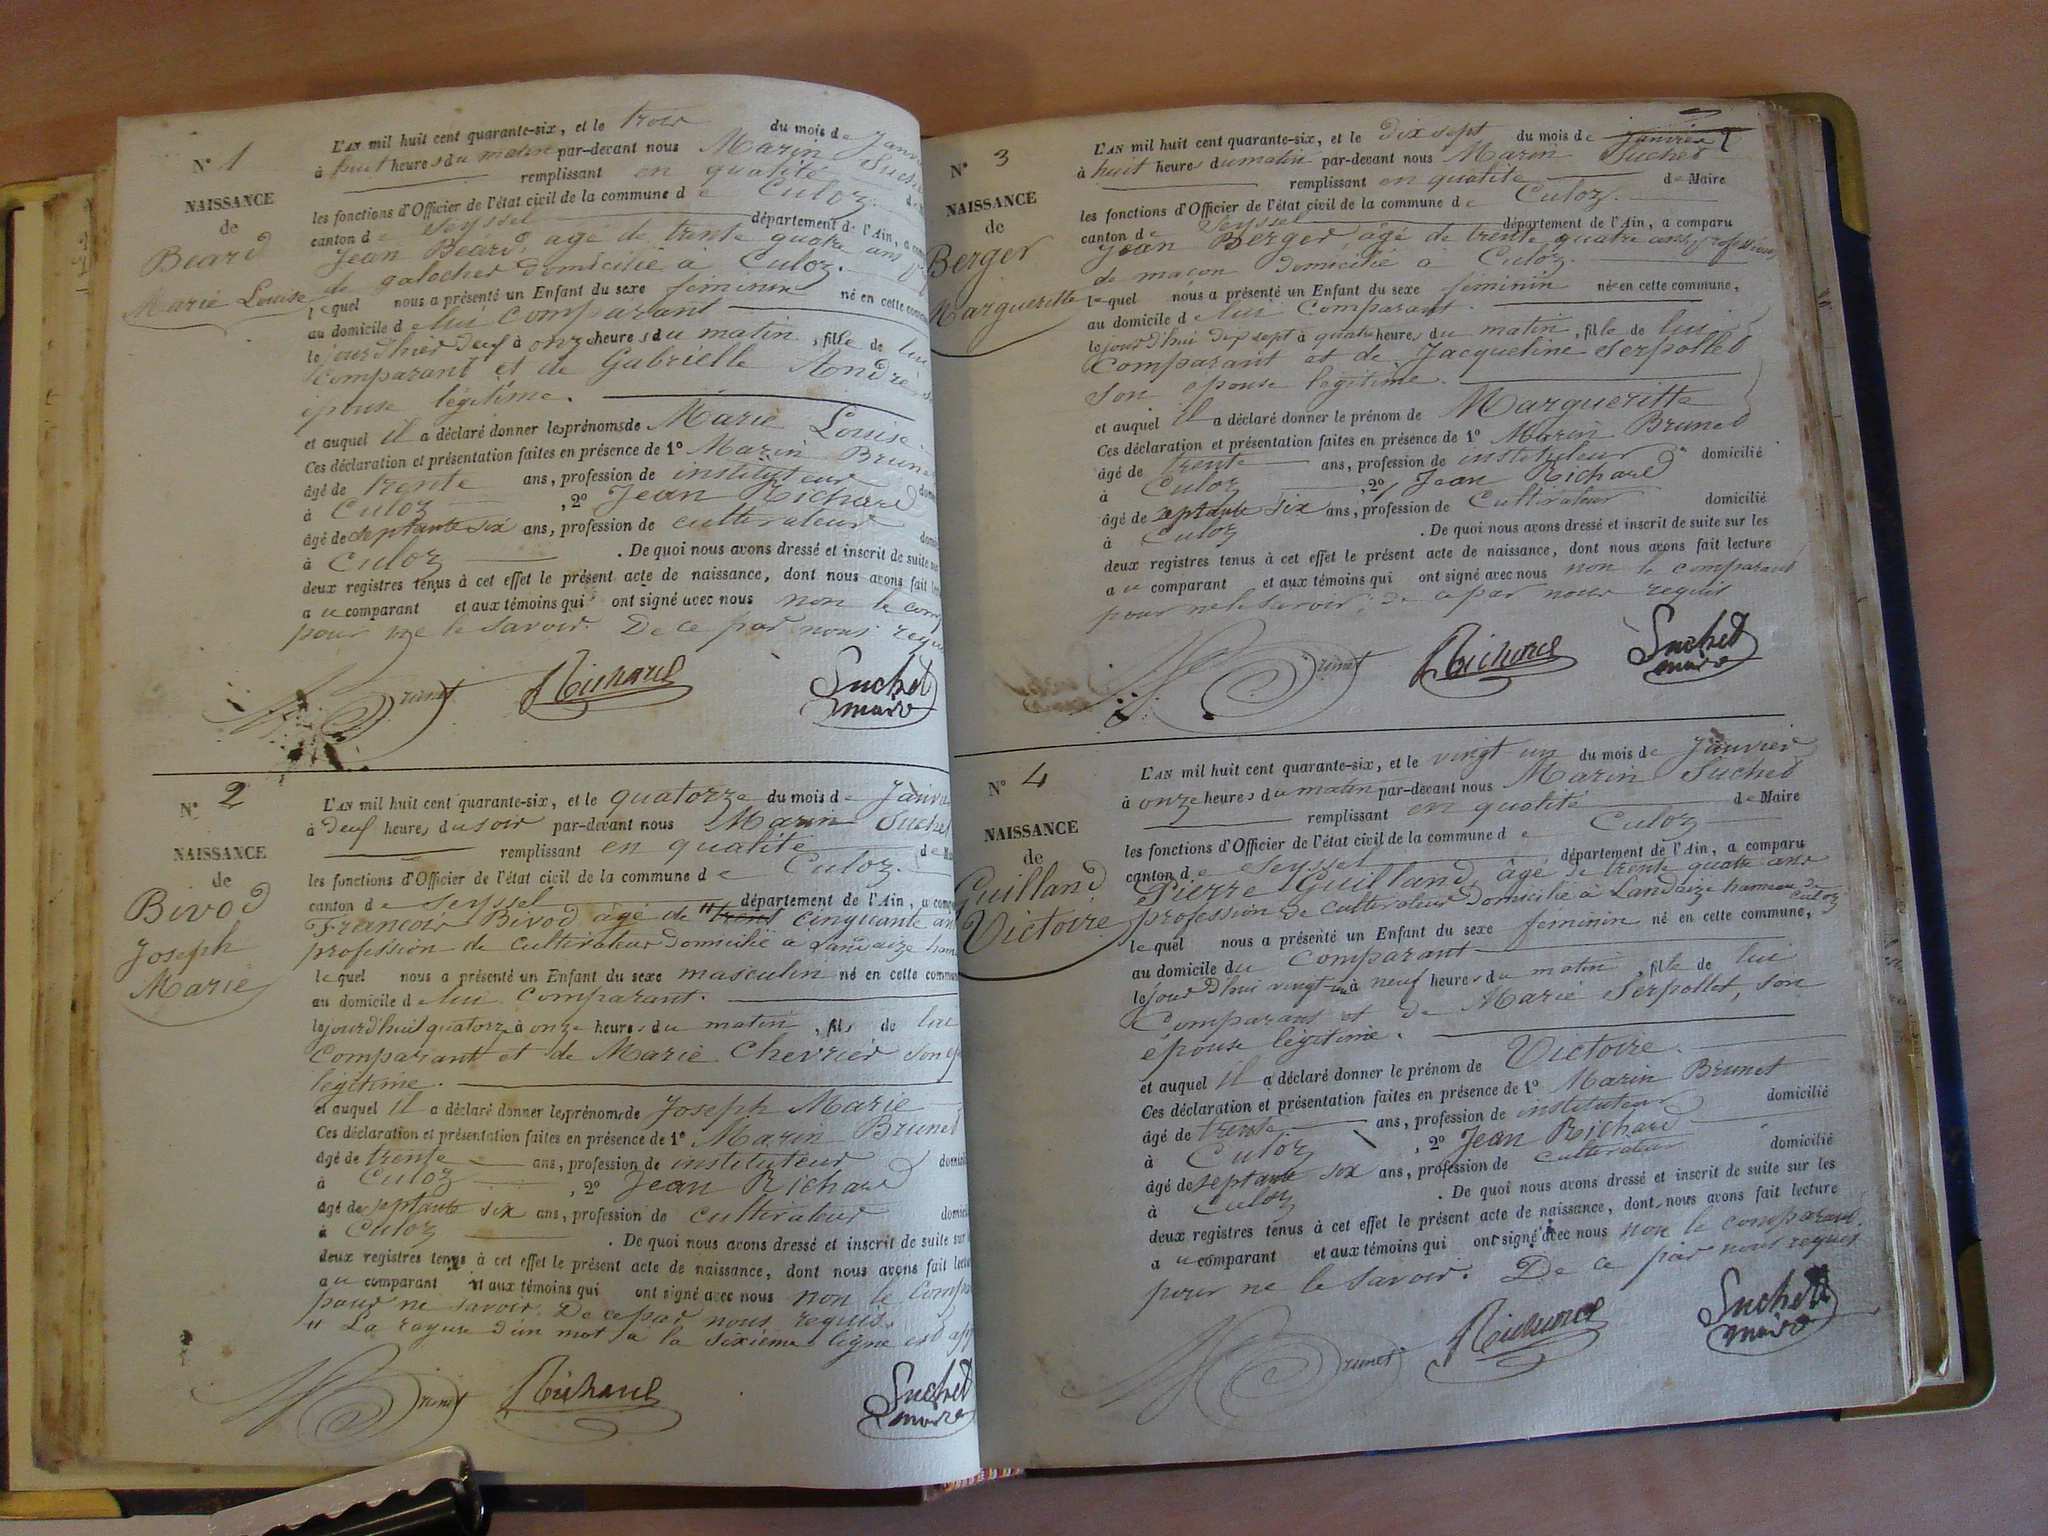 N° 1
NAISSANCE
de
Beard
Marie Louise
L'AN mil huit cent quarante-six, et le trois du mois de Janv
à huit heures du matin par-devant nous Marin Suche
remplissant en qualité d
les fonctions d'Officier de l'état civil de la commune de Culoz.
canton de Seyssel département de l'Ain, a com
Jean Beard, agé de trente quatre ans
de galocher domicilié à Culoz.
lequel nous a présenté un Enfant du sexe féminin né en cette comm
au domicile de lui comparant
le jourd'hier deuf à onze heures du matin, fille de lui
comparant et de Gabrielle
épouse légitime.
et auquel il a déclaré donner les prénoms de Marie Louise.
Ces déclaration et présentation faites en présence de 1° Marin Brune
âgé de trente ans, profession de instituteur dom
à Culoz, 2° Jean Richard
âgé de septante six ans, profession de cultivateur domi
à Culoz. De quoi nous avons dressé et inscrit de suite sur
deux registres tenus à cet effet le présent acte de naissance, dont nous avons fait le
au comparant et aux témoins qui ont signé avec nous non le com
pour ne le savoir. De ce par nous requ
Brunet Richard Suchet
maire
N° 2
NAISSANCE
de
Bivod
Joseph
Marie
L'AN mil huit cent quarante-six, et le quatorze du mois de Janv
à deuf heures du soir par-devant nous Marin Suchet
remplissant en qualité de Ma
les fonctions d'Officier de l'état civil de la commune de Culoz.
canton de Seyssel département de l'Ain, a com
François Bivod âgé de " trent cinquante an
profession de cultivateur domicilié à Landaize ham
lequel nous a présenté un Enfant du sexe masculin né en cette commun
au domicile de lui comparant.
le jourd'hui quatorze à onze heures du matin, fils de lui
Comparant et de Marie Chevrier son ép
légitime.
et auquel il a déclaré donner les prénoms de Joseph Marie
Ces déclaration et présentation faites en présence de 1° Marin Brunet
âgé de trente ans, profession de instituteur domici
à Culoz, 2° Jean Richard
âgé de septante six ans, profession de cultivateur domici
à Culoz. De quoi nous avons dressé et inscrit de suite sur
deux registres tenus à cet effet le présent acte de naissance, dont nous avons fait lectu
au comparant et aux témoins qui ont signé avec nous non le Compa
pour ne savoir. De ce par nous requis.
" La rayure d'un mot à la sixième ligne est app
Brunet Richard Suchet
maire
N° 3
NAISSANCE
de
Berger
Margueritte
L'AN mil huit cent quarante-six, et le dix sept du mois de Janvier
à huit heures du matin par-devant nous Marin Suchet
remplissant en qualité de Maire
les fonctions d'Officier de l'état civil de la commune de Culoz.
canton de Seyssel département de l'Ain, a comparu
Jean Berger âgé de trente quatre ans, profession
de maçon domicilié à Culoz.
lequel nous a présenté un Enfant du sexe féminin né en cette commune,
au domicile de lui Comparant.
le jourd'hui dix sept à quatre heures du matin, fille de lui
Comparant et de Jacqueline Serpollet
son épouse légitime.
et auquel il a déclaré donner le prénom de Margueritte
Ces déclaration et présentation faites en présence de 1° Marin Brunet
âgé de trente ans, profession de instituteur domicilié
à Culoz, 2° Jean Richard
âgé de septante six ans, profession de Cultivateur domicilié
à Culoz. De quoi nous avons dressé et inscrit de suite sur les
deux registres tenus à cet effet le présent acte de naissance, dont nous avons fait lecture
au comparant et aux témoins qui ont signé avec nous non le comparant
pour ne le savoir; de ce par nous requis
Brunet Richard Suchet
maire
N° 4
NAISSANCE
de
Guilland
Victoire
L'AN mil huit cent quarante-six, et le vingt un du mois de Janvier
à onze heures du matin par-devant nous Marin Suchet
remplissant en qualité de Maire
les fonctions d'Officier de l'état civil de la commune de Culoz
canton de Seyssel département de l'Ain, a comparu
Pierre Guilland, âgé de trente quatre ans
profession de cultivateur domicilié à Landaize hameau de
Culoz
lequel nous a présenté un Enfant du sexe féminin né en cette commune,
au domicile du Comparant
le jourd'hui vingt un à neuf heures du matin, fille de lui
Comparant et de Marie Serpollet, son
épouse légitime.
et auquel il a déclaré donner le prénom de Victoire.
Ces déclaration et présentation faites en présence de 1° Marin Brunet
âgé de trente ans, profession de instituteur domicilié
à Culoz, 2° Jean Richard
âgé de septante six ans, profession de cultivateur domicilié
à Culoz. De quoi nous avons dressé et inscrit de suite sur les
deux registres tenus à cet effet le présent acte de naissance, dont nous avons fait lecture
au comparant et aux témoins qui ont signé avec nous non le comparant,
pour ne le savoir. De ce par nous requis
Brunet Richard Suchet
maire